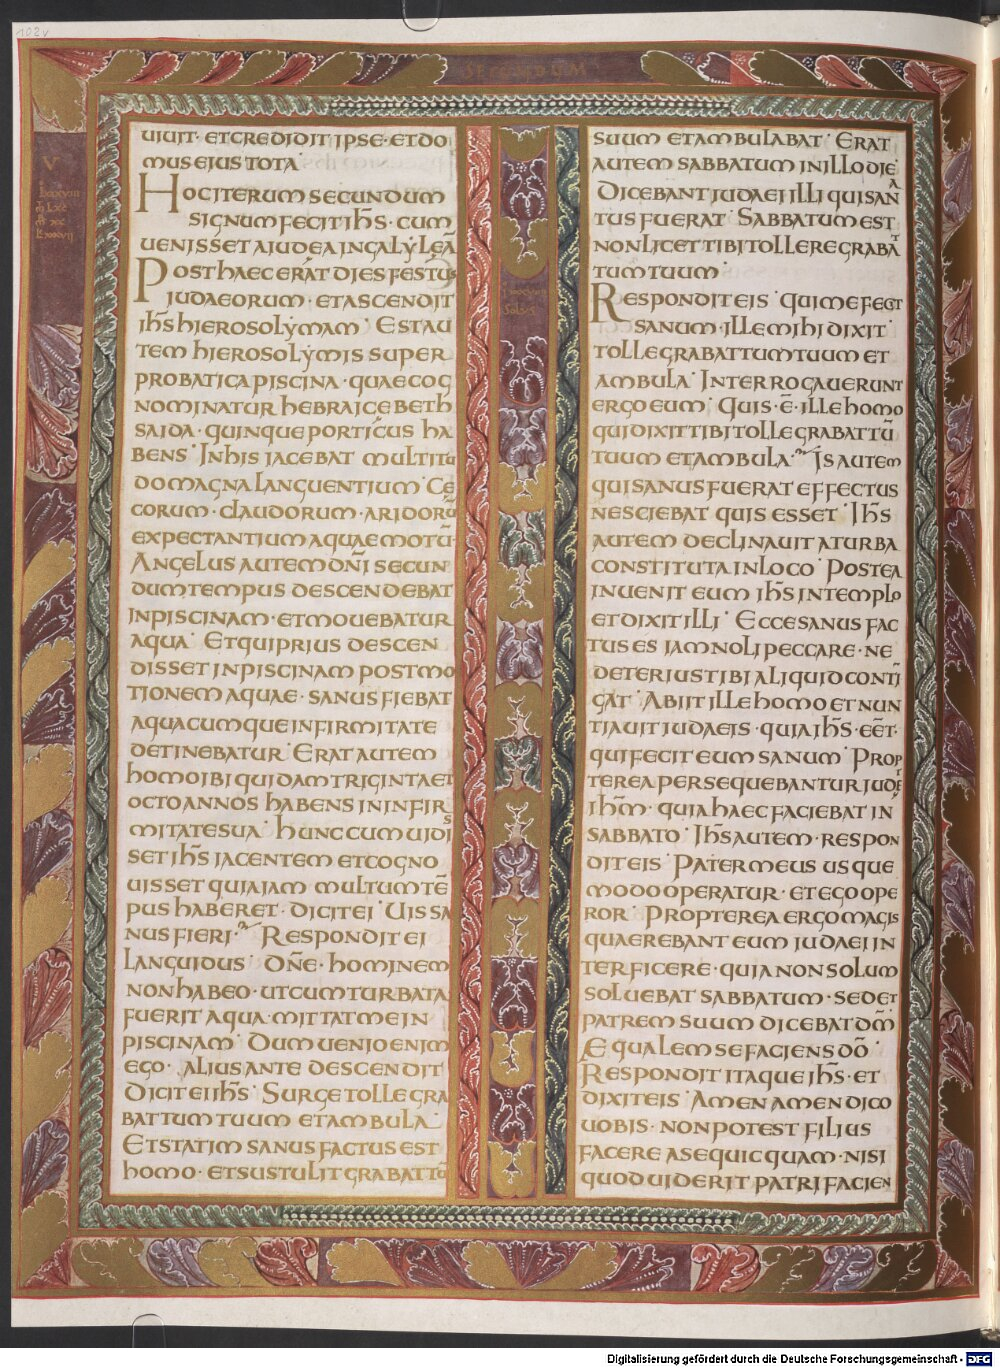 102v
SECUNDUM
V
UIUIT· ETCREDIDIT IPSE· ETDO
MUS EIUS TOTA
HOC ITERUM SECUNDUM
SIGNUM FECIT IH̄S· CUM
UENISSET A IUDEA IN GALYLEĀ
POST HAEC ERAT DIES FESTUS
IUDAEORUM· ET ASCENDIT
IH̄S HIEROSOLYMAM· EST AU
TEM HIEROSOLYMIS SUPER
PROBATICA PISCINA· QUAE COG
NOMINATUR HEBRAICE BETH
SAIDA· QUINQUE PORTICUS HA
BENS· IN HIS IACEBAT MULTITU
DO MAGNA LANGUENTIUM· CE
CORUM· CLAUDORUM· ARIDORŪ
EXPECTANTIUM AQUAE MOTŪ·
ANGELUS AUTEM DN̄I SECUN
DUM TEMPUS DESCENDEBAT
IN PISCINAM· ET MOUEBATUR
AQUA· ET QUI PRIUS DESCEN
DISSET IN PISCINAM POST MO
TIONEM AQUAE· SANUS FIEBAT
A QUACUMQUE INFIRMITATE
DETINEBATUR· ERAT AUTEM
HOMO IBI QUIDAM TRIGINTA ET
OCTO ANNOS HABENS IN INFIR
MITATE SUA· HUNC CUM UIDIS
SET IH̄S IACENTEM ET COGNO
UISSET QUIA IAM MULTUM TĒ
PUS HABERET· DICIT EI· UIS SA
NUS FIERI· RESPONDIT EI
LANGUIDUS· DN̄E· HOMINEM
NON HABEO· UT CUM TURBATA
FUERIT AQUA· MITTAT ME IN
PISCINAM· DUM UENIO ENIM
EGO· ALIUS ANTE DESCENDIT
DICIT EI IH̄S· SURGE TOLLE GRA
BATTUM TUUM ET AMBULA
ET STATIM SANUS FACTUS EST
HOMO· ET SUSTULIT GRABATTŪ
SUUM ET AMBULABAT· ERAT
AUTEM SABBATUM IN ILLO DIE
DICEBANT IUDAEI ILLI QUI SANA
TUS FUERAT· SABBATUM EST
NON LICET TIBI TOLLERE GRABAT
TUM TUUM·
RESPONDIT EIS· QUI ME FECIT
SANUM· ILLE MIHI DIXIT·
TOLLE GRABATTUM TUUM ET
AMBULA· INTERROGAUERUNT
ERGO EUM· QUIS· Ē· ILLE HOMO
QUI DIXIT TIBI TOLLE GRABATTŪ
TUUM ET AMBULA· IS AUTEM
QUI SANUS FUERAT EFFECTUS
NESCIEBAT QUIS ESSET· IH̄S
AUTEM DECLINAUIT A TURBA
CONSTITUTA IN LOCO· POSTEA
INUENIT EUM IH̄S IN TEMPLO
ET DIXIT ILLI· ECCE SANUS FAC
TUS ES IAM NOLI PECCARE· NE
DETERIUS TIBI ALIQUID CONTĪ
GAT· ABIIT ILLE HOMO ET NUN
TIAUIT IUDAEIS· QUIA IH̄S· EĒT·
QUI FECIT EUM SANUM· PROP
TEREA PERSEQUEBANTUR IUDEI
IH̄M· QUIA HAEC FACIEBAT IN
SABBATO· IH̄S AUTEM· RESPON
DIT EIS· PATER MEUS USQUE
MODO OPERATUR· ET EGO OPE
ROR· PROPTEREA ERGO MAGIS
QUAEREBANT EUM IUDAEI IN
TERFICERE· QUIA NON SOLUM
SOLUEBAT SABBATUM· SED ET
PATREM SUUM DICEBAT DM̄
ÆQUALEM SE FACIENS DŌ·
RESPONDIT ITAQUE IH̄S· ET
DIXIT EIS· AMEN AMEN DICO
UOBIS· NON POTEST FILIUS
FACERE A SE QUICQUAM· NISI
QUOD UIDERIT PATRI FACIEN
Digitalisierung gefördert durch die Deutsche Forschungsgemeinschaft - DFG